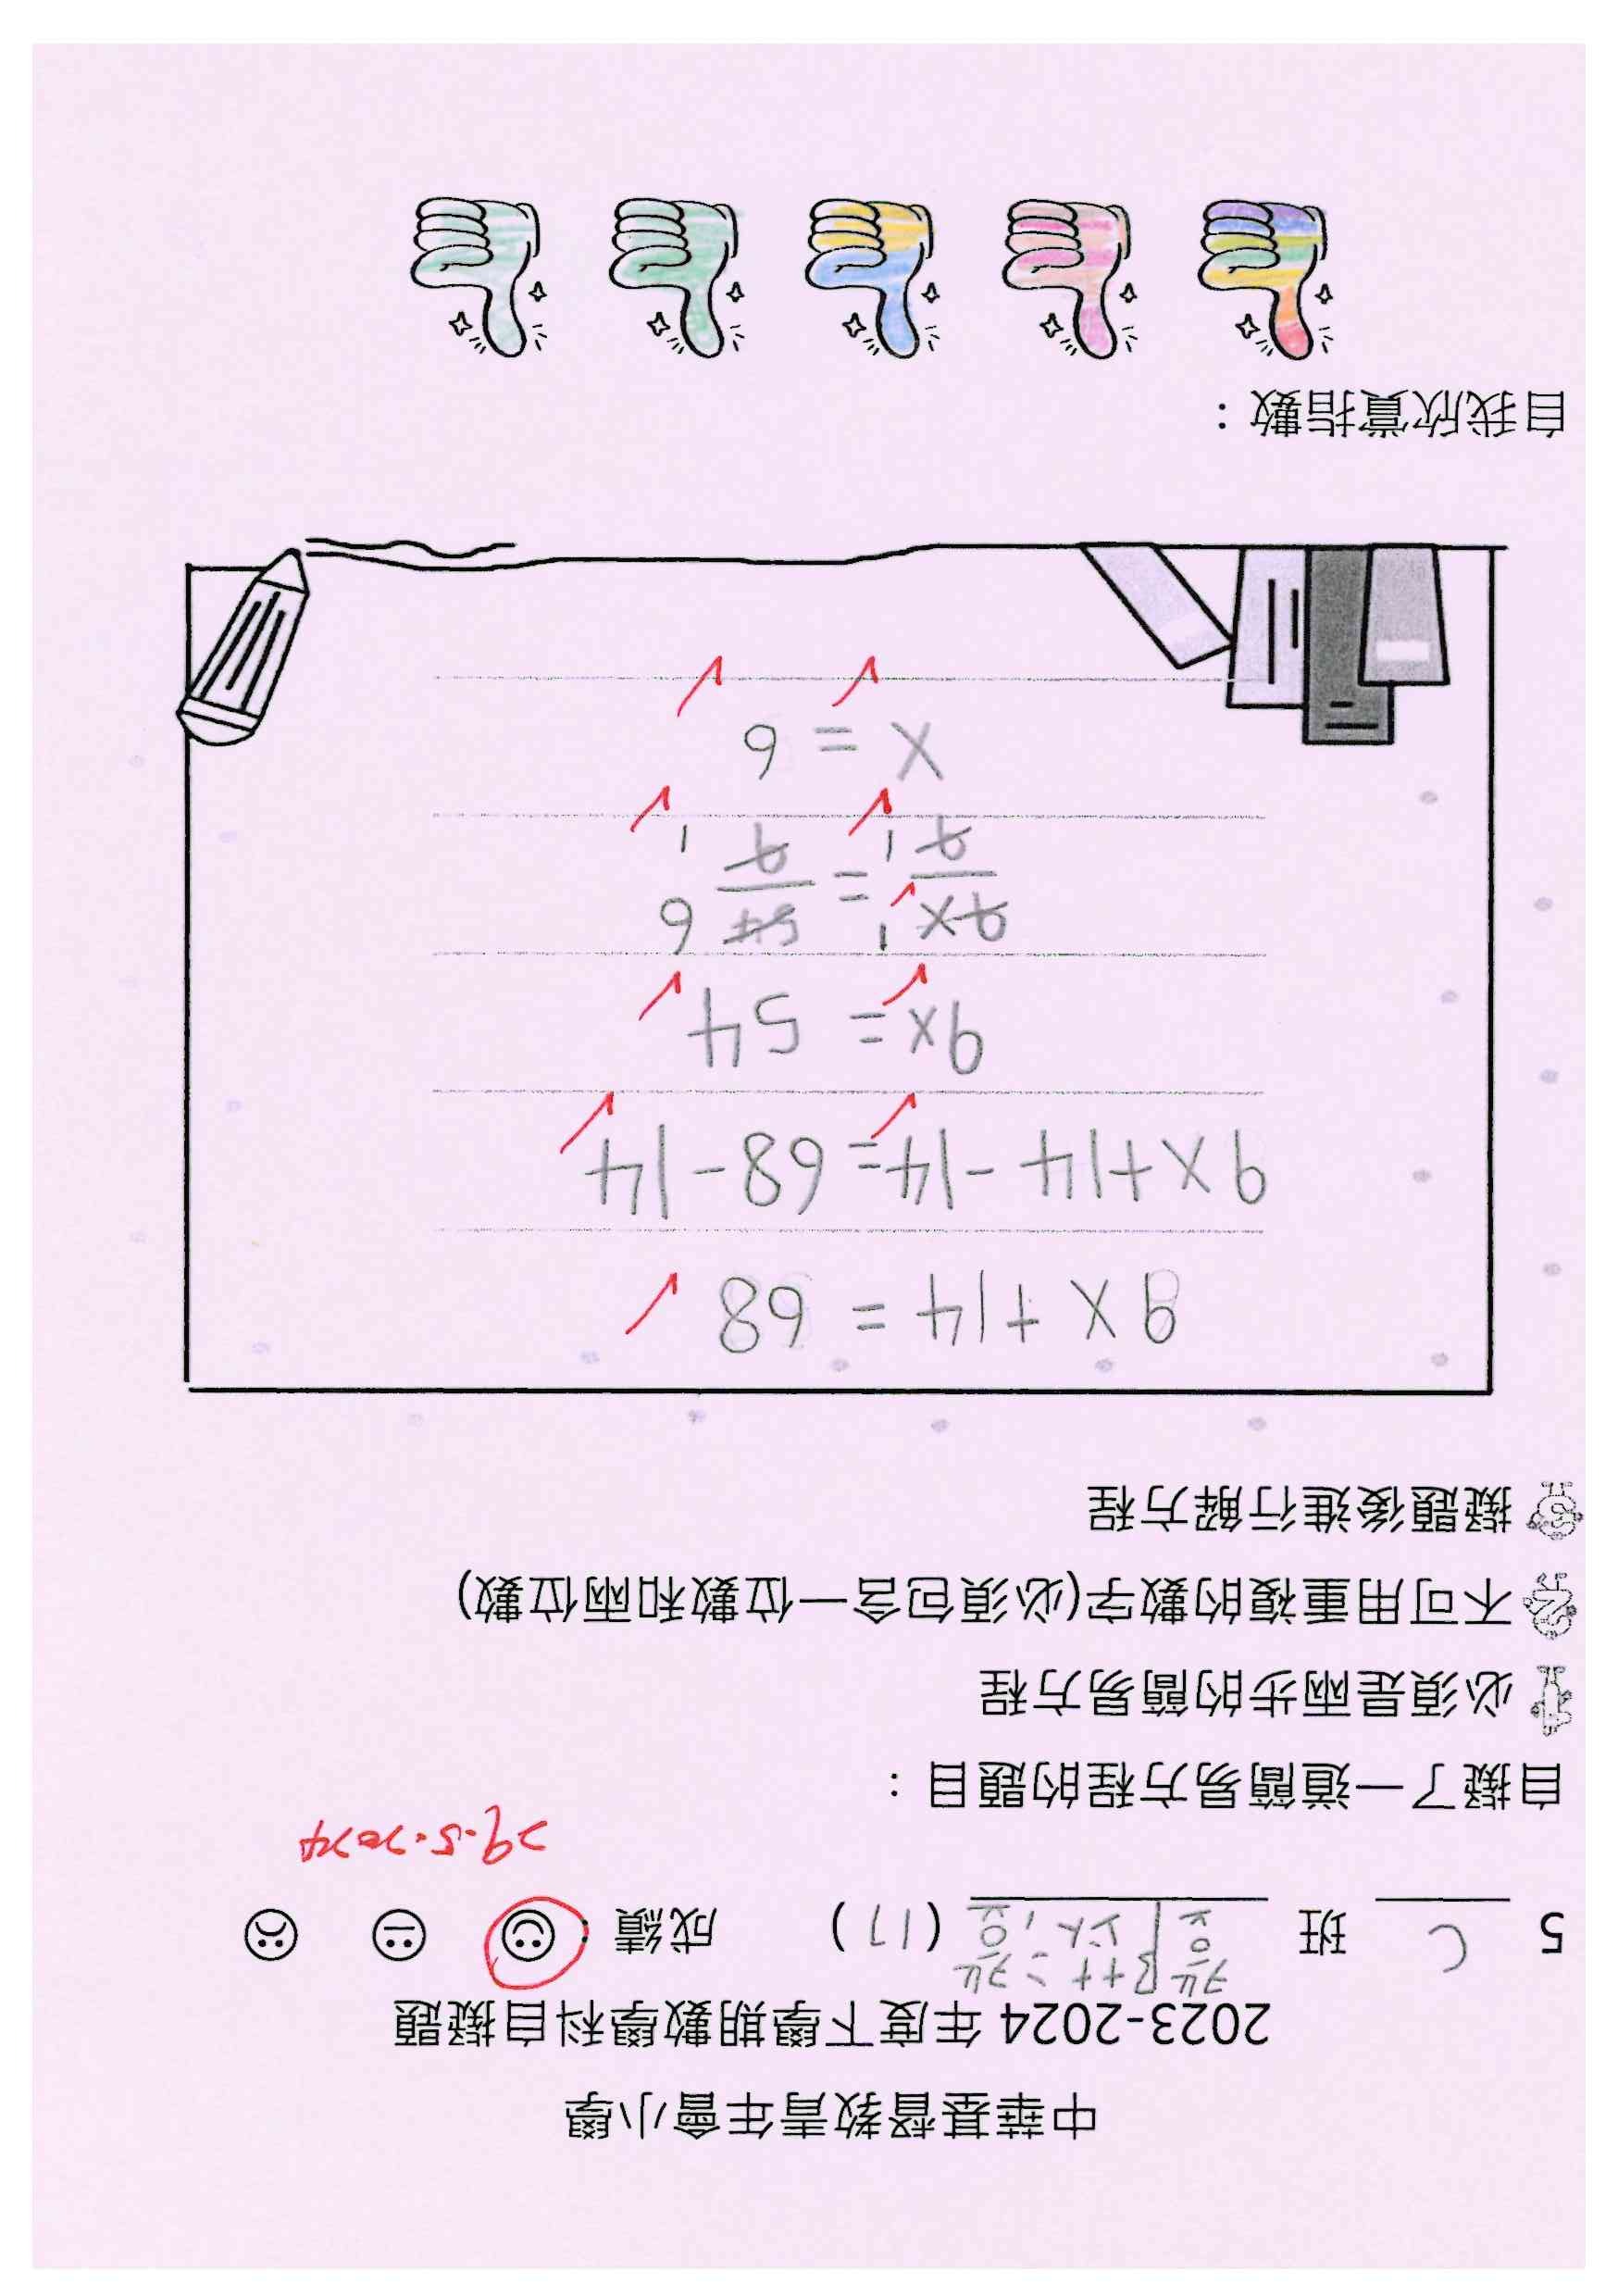 中華基督教青年會小學
2023-2024 年度下學期數學科自擬題
5 C 班 (17) 成績：
29.5.2024
自擬了一道簡易方程的題目：
必須是兩步的簡易方程
不可用重複的數字(必須包含一位數和兩位數)
擬題後進行解方程
9x+14 = 68
9x+14-14=68-14
9x = 54
9x 1 = 54 6
9 1 9 1
x = 6
自我欣賞指數：